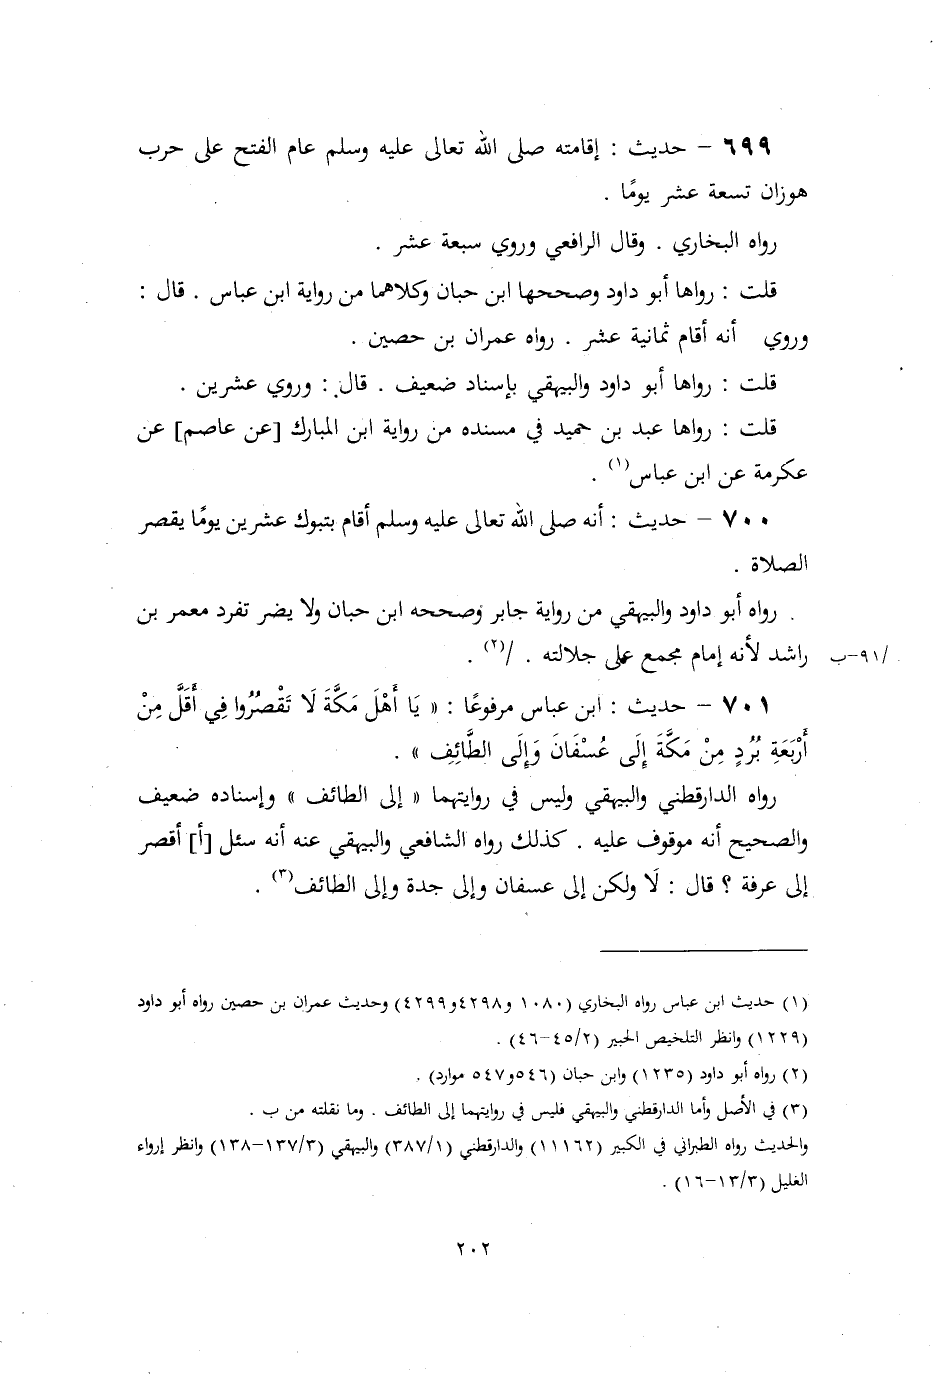 ٦٩٩ – حديث : إقامته صلى الله تعالى عليه وسلم عام الفتح على حرب
هوزان تسعة عشر يومًا .
رواه البخاري . وقال الرافعي وروي سبعة عشر .
قلت : رواها أبو داود وصححها ابن حبان وكلاهما من رواية ابن عباس . قال :
وروي أنه أقام ثمانية عشر . رواه عمران بن حصين .
قلت : رواها أبو داود والبيهقي بإسناد ضعيف . قال : وروي عشرين .
قلت : رواها عبد بن حميد في مسنده من رواية ابن المبارك [عن عاصم] عن
عكرمة عن ابن عباس(١) .
٧٠٠ – حديث : أنه صلى الله تعالى عليه وسلم أقام بتبوك عشرين يومًا يقصر
الصلاة .
رواه أبو داود والبيهقي من رواية جابر وصححه ابن حبان ولا يضر تفرد معمر بن
راشد لأنه إمام مجمع على جلالته . /(٢) . /٩١–ب
٧٠١ – حديث : ابن عباس مرفوعًا : « يَا أَهْلَ مَكَّةَ لَا تَقْصُرُوا فِي أَقَلَّ مِنْ
أَرْبَعَةِ بُرُدٍ مِنْ مَكَّةَ إِلَى عُسْفَانَ وَإِلَى الطَّائِفِ » .
رواه الدارقطني والبيهقي وليس في روايتهما « إلى الطائف » وإسناده ضعيف
والصحيح أنه موقوف عليه . كذلك رواه الشافعي والبيهقي عنه أنه سئل [أ] أقصر
إلى عرفة ؟ قال : لَا ولكن إلى عسفان وإلى جدة وإلى الطائف(٣) .
(١) حديث ابن عباس رواه البخاري (١٠٨٠ و٤٢٩٨و٤٢٩٩) وحديث عمران بن حصين رواه أبو داود
(١٢٢٩) وانظر التلخيص الحبير (٤٥/٢–٤٦) .
(٢) رواه أبو داود (١٢٣٥) وابن حبان (٥٤٦و٥٤٧ موارد) .
(٣) في الأصل وأما الدارقطني والبيهقي فليس في روايتهما إلى الطائف . وما نقلته من ب .
والحديث رواه الطبراني في الكبير (١١١٦٢) والدارقطني (٣٨٧/١) والبيهقي (١٣٧/٣–١٣٨) وانظر إرواء
الغليل (١٣/٣–١٦) .
٢٠٢